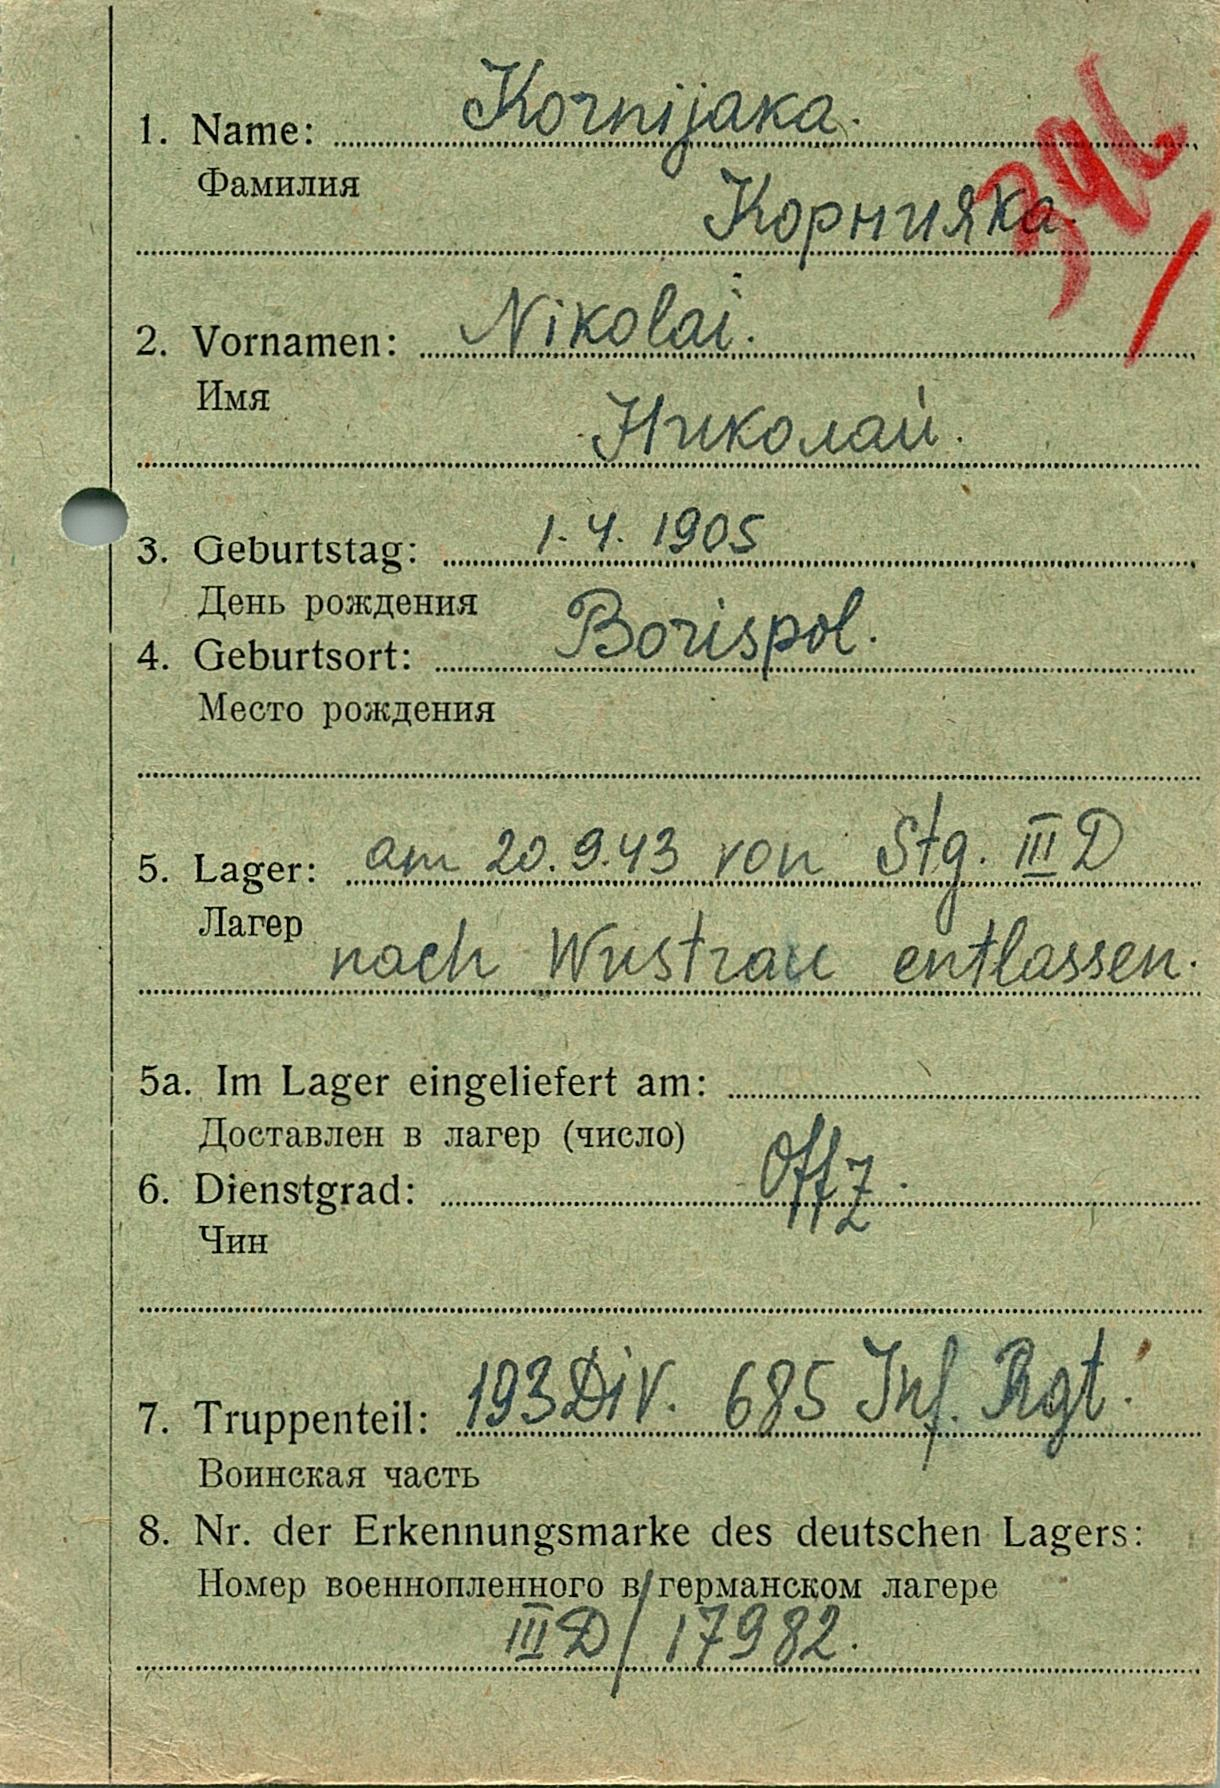 1. Name: Kornijaka.
Фамилия
Корнияка.
2. Vornamen: Nikolai.
Имя
Николай.
3. Geburtstag: 1.4.1905
День рождения
4. Geburtsort: Borispol.
Место рождения
5. Lager: am 20.9.43 von Stg. III D
Лагер
nach Wustrau entlassen.
5a. Im Lager eingeliefert am:
Доставлен в лагер (число)
6. Dienstgrad: Offz.
Чин
7. Truppenteil: 193 Div. 685 Inf. Rgt.
Воинская часть
8. Nr. der Erkennungsmarke des deutschen Lagers:
Номер военнопленного в германском лагере
III D / 17982.